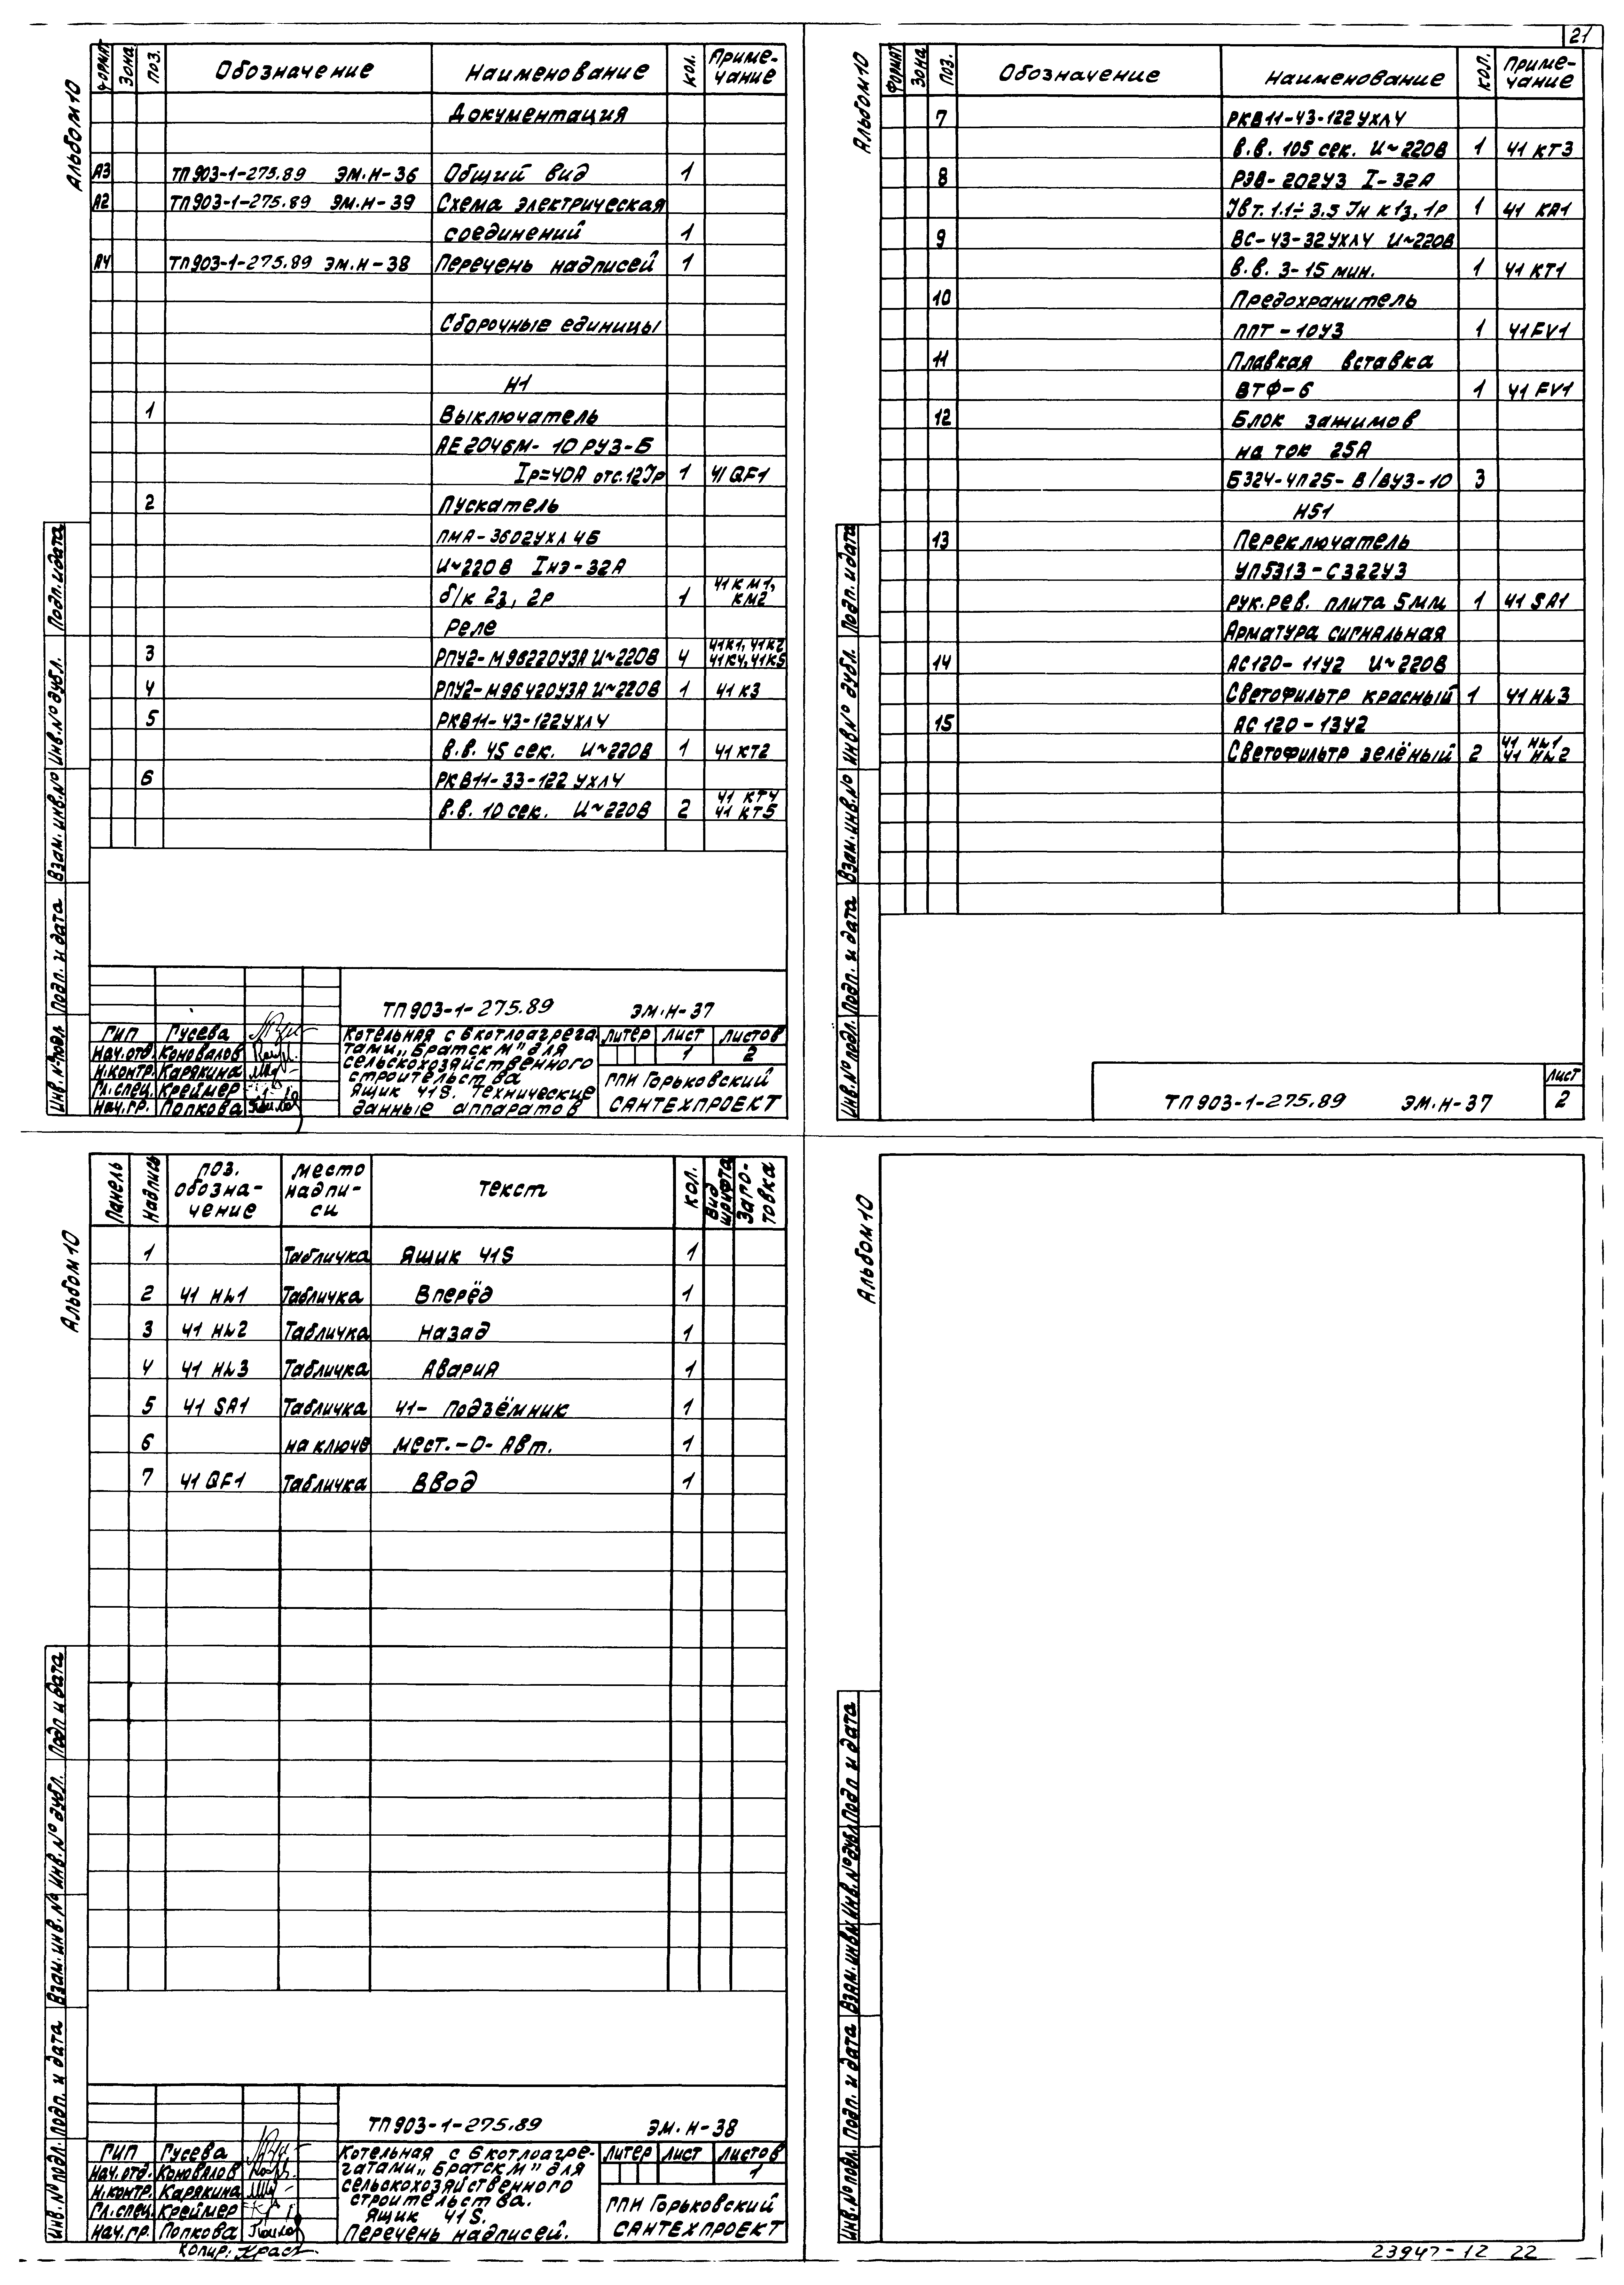 Альбом 10
Формат Зона Поз. Обозначение Наименование Кол. Приме-
чание
Документация
А3 ТП903-1-275.89 ЭМ.Н-36 Общий вид 1
А2 ТП903-1-275.89 ЭМ.Н-39 Схема электрическая
соединений 1
А4 ТП903-1-275.89 ЭМ.Н-38 Перечень надписей 1
Сборочные единицы
Н1
1 Выключатель
АЕ2046М-10РУ3-Б
Iр=40А отс.12Iр 1 41QF1
2 Пускатель
ПМА-3602УХЛ4Б
U~220В Iнэ-32А
б/к 2з, 2р 1 41КМ1,
КМ2
Реле
3 РПУ2-М96220У3А U~220В 4 41К1, 41К2
41К4, 41К5
4 РПУ2-М96420У3А U~220В 1 41К3
5 РКВ11-43-122УХЛ4
В.в. 45 сек. U~220В 1 41КТ2
6 РКВ11-33-122УХЛ4
В.в. 10 сек. U~220В 2 41 КТ4
41 КТ5
Инв.№подл. Подп. и дата Взам.инв.№ Инв.№дубл. Подп.идата
ТП903-1-275.89 ЭМ.Н-37
ГИП Гусева
Нач.отд. Коновалов
Н.контр. Карякина
Гл.спец. Креймер
Нач.гр. Попкова
Котельная с 6 котлоагрега-
тами „Братск М" для
сельскохозяйственного
строительства
Ящик 41S. Технические
данные аппаратов
Литер Лист Листов
1 2
ГПИ Горьковский
САНТЕХПРОЕКТ
21
Альбом 10
Формат Зона Поз. Обозначение Наименование Кол. Приме-
чание
7 РКВ11-43-122УХЛ4
В.в. 105 сек. U~220В 1 41 КТ3
8 РЭВ-202У3 I-32А
Iвт.1.1÷3.5 Iн к 1з, 1р 1 41 КА1
9 ВС-43-32УХЛ4 U~220В
В.в. 3-15 мин. 1 41 КТ1
10 Предохранитель
ППТ-10У3 1 41FV1
11 Плавкая вставка
ВТФ-6 1 41 FV1
12 Блок зажимов
на ток 25А
Б324-4П25-В/ВУ3-10 3
Н51
13 Переключатель
УП5313-С322У3
Рук.рев. плита 5мм 1 41 SA1
Арматура сигнальная
14 АС120-11У2 U~220В
Светофильтр красный 1 41 HL3
15 АС120-13У2
Светофильтр зелёный 2 41 HL1
41 HL2
Инв.№подл. Подп. и дата Взам.инв.№ Инв.№дубл. Подп.идата
ТП903-1-275.89 ЭМ.Н-37
Лист
2
Альбом 10
Панель Надпись Поз.
обозна-
чение Место
надпи-
си Текст Кол. Вид
шрифта Заго-
товка
1 Табличка Ящик 41S 1
2 41 HL1 Табличка Вперёд 1
3 41 HL2 Табличка Назад 1
4 41 HL3 Табличка Авария 1
5 41 SA1 Табличка 41- подъёмник 1
6 на ключе Мест.-О-Авт. 1
7 41QF1 Табличка Ввод 1
Инв.№подл. Подп. и дата Взам.инв.№ Инв.№дубл. Подп и дата
ТП903-1-275.89 ЭМ.Н-38
ГИП Гусева
Нач.отд. Коновалов
Н.контр. Карякина
Гл.спец. Креймер
Нач.гр. Попкова
Котельная с 6 котлоагре-
гатами „Братск М" для
сельскохозяйственного
строительства.
Ящик 41S.
Перечень надписей.
Литер Лист Листов
1
ГПИ Горьковский
САНТЕХПРОЕКТ
Копир:
Альбом 10
Инв.№подл. Подп. и дата Взам.инв.№ Инв.№дубл. Подп и дата
23947-12 22